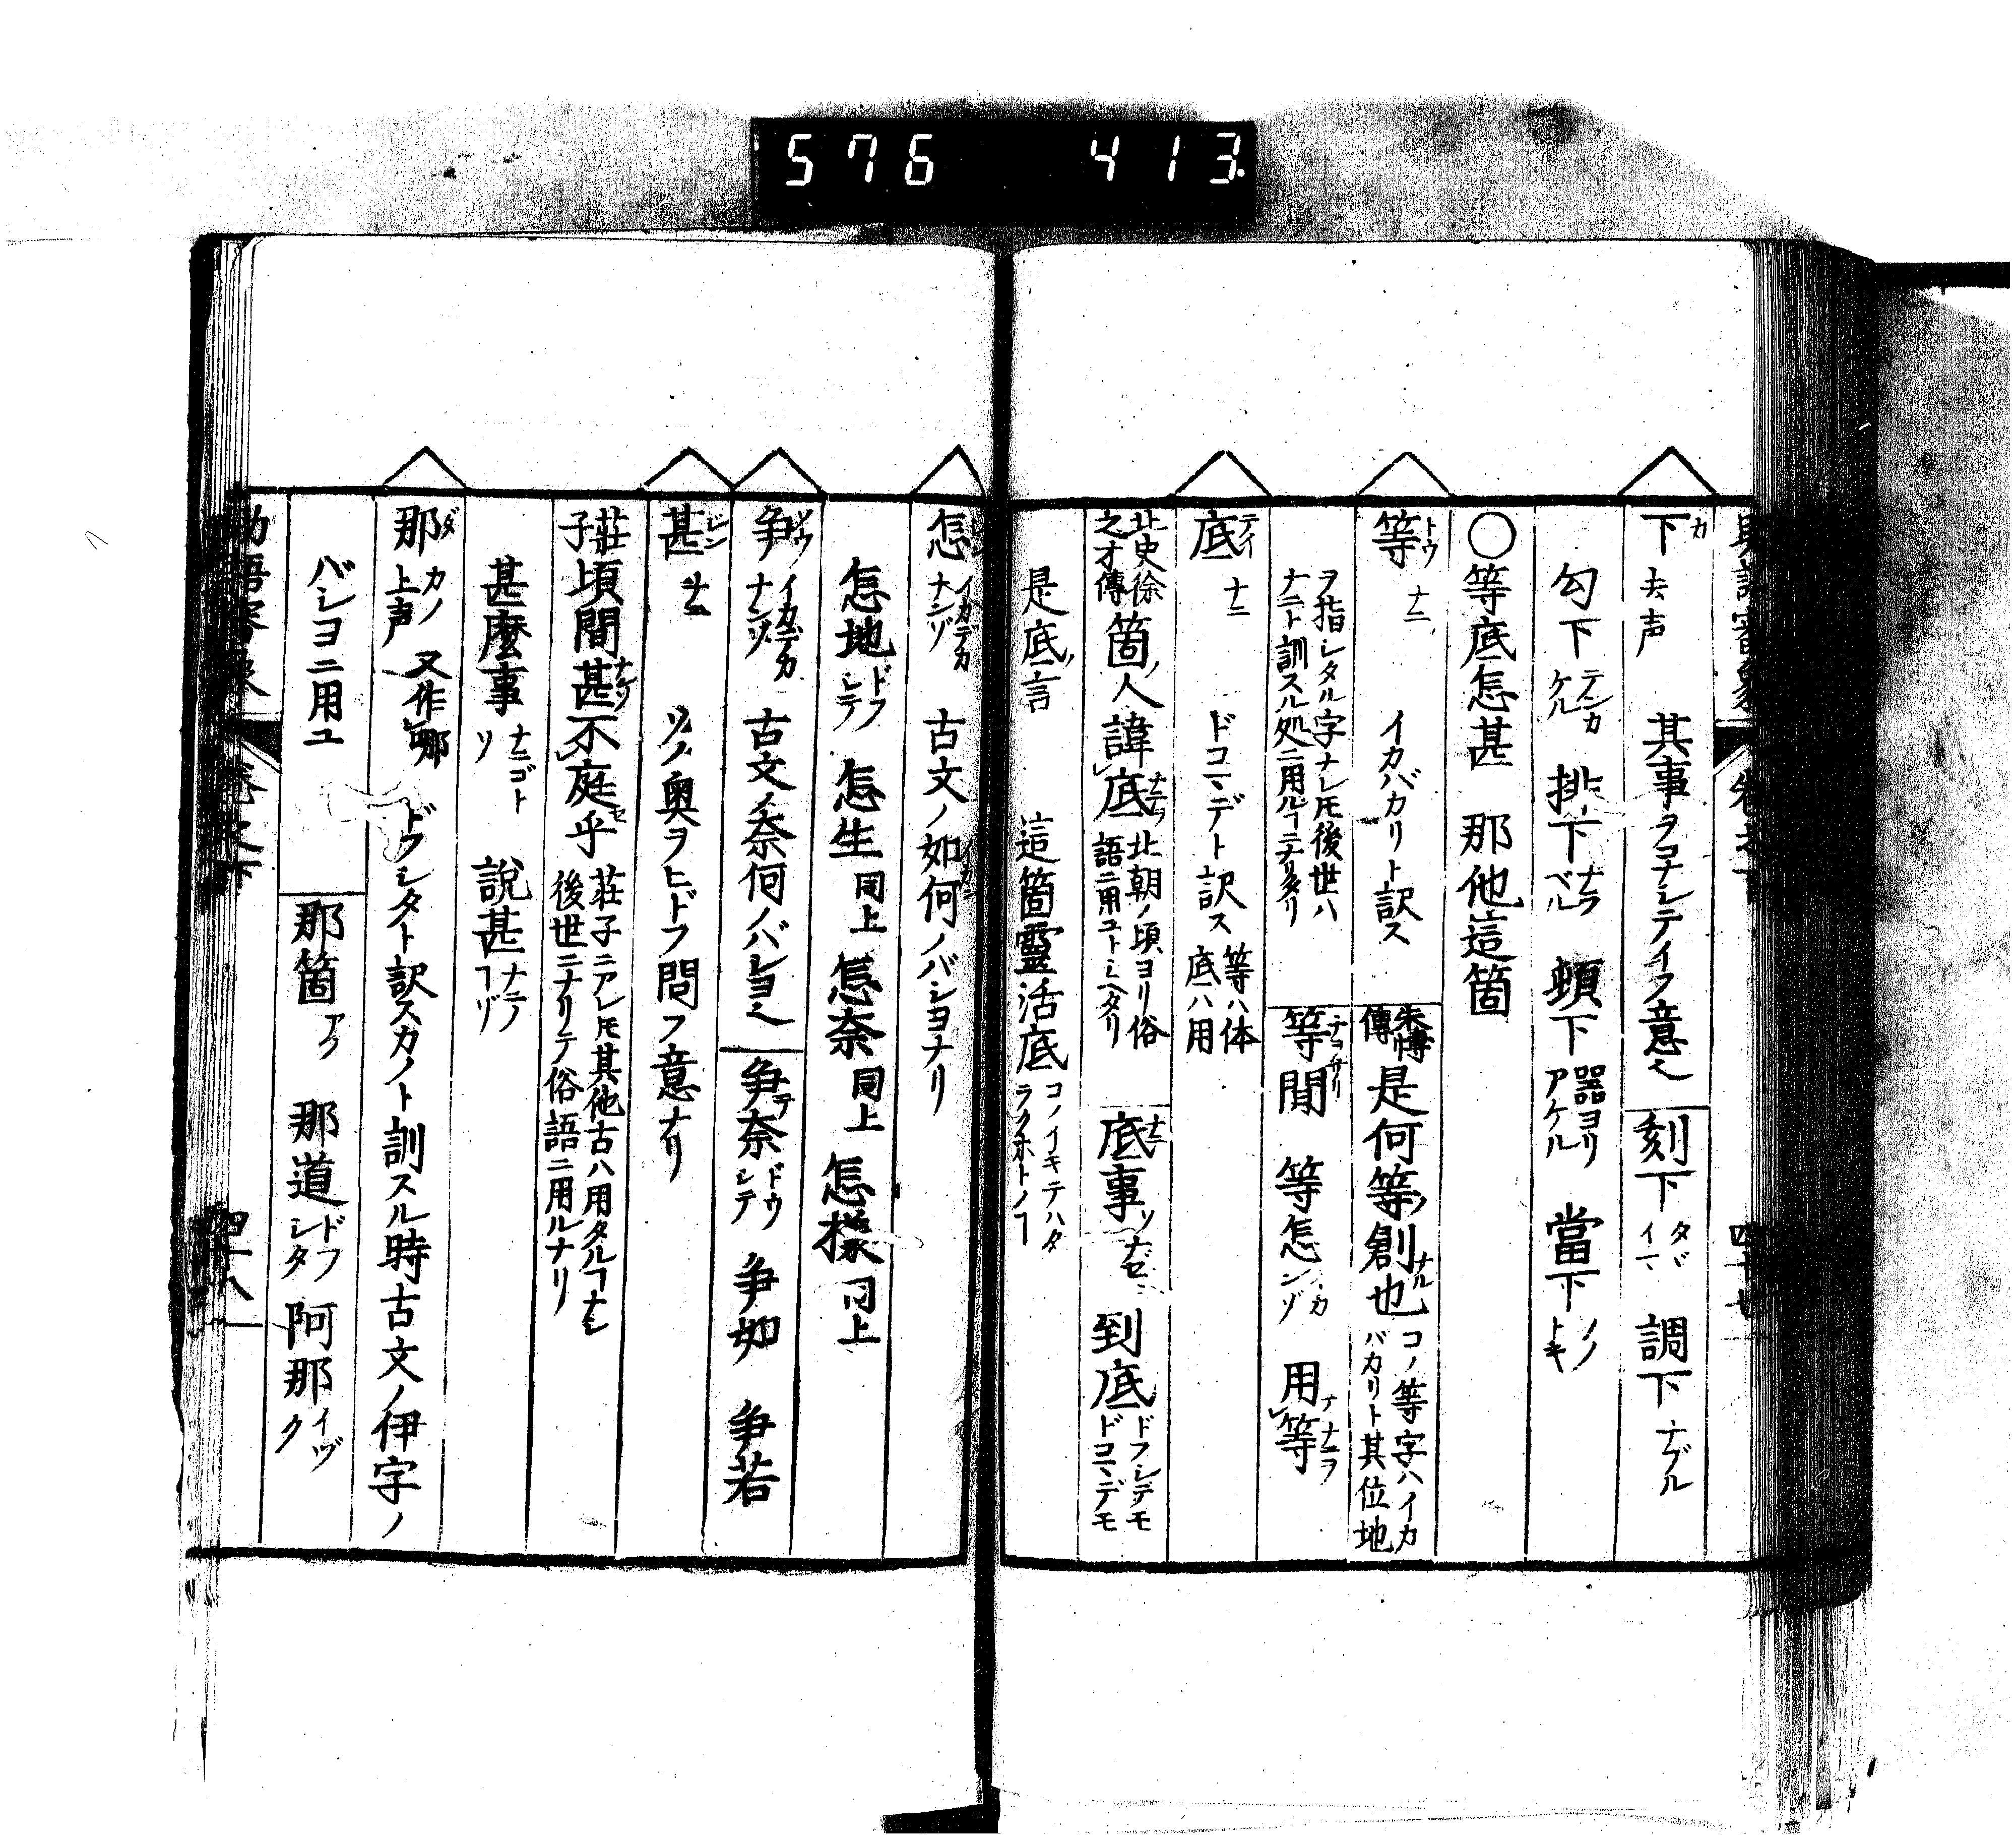 576 413
下カ 去声 其事ヲコナシテイフ意也 刻下タヾイマ 調下ナヅル
勾下テンカケル 排下ナラベル 頓下器ヨリアケル 當下ノトキ
〇等底怎甚 那他這箇
等トウ ナニ イカバカリト訳ス 朱博傳 是何等ノ創ナル也 コノ等字ハイカバカリト其位地
ヲ指シタル字ナレ𪜈後世ハナニト訓スル処ニ用ルヿニナリタリ 等閒ナヲサリ 等怎 用等ナニヲ
底テイ ナニ ドコマデト訳ス 等ハ体底ハ用
北史徐之才傳 箇ノ人諱底ナニヲ 北朝ノ頃ヨリ俗語ニ用ユトミヘタリ 底事ナニ 到底ドフシテモドコマデモ
是底ノ言 這箇靈活底コノイキテハタラクホトノヿ
怎 イカデカナンゾ 古文ノ如何イカンノバシヨナリ
怎地ドフシテ 怎生同上 怎奈同上 怎樣同上
争ソウ イカデカナンゾ 古文ノ奈何ノバシヨ也 争奈ドウシテ 争如 争若
甚ジン ナニ ソノ奥ヲヒドフ問フ意ナリ
莊子 頃間甚ナンゾ不庭セ乎 莊子ニアレ𪜈其他古ハ用タルヿナシ後世ニナリテ俗語ニ用ルナリ
甚麼事ナニゴトソ 說甚ナニノヿゾ
那ダ カノ上声 又作哪 ドウシタト訳スカノト訓スル時古文ノ伊字ノ
バシヨニ用ユ 那箇アノ 那道ドフシタ 阿那イヅク
四十八